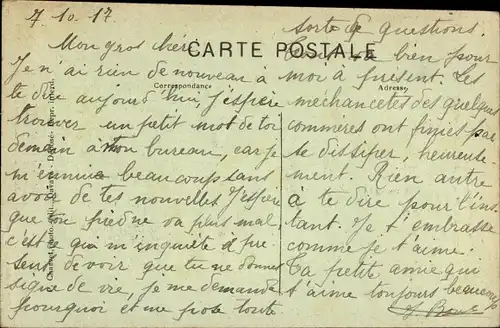 7.10.17
CARTE POSTALE
Correspondance
Adresse
Mon gros chéri
Je n'ai rien de nouveau à
te dire aujourd'hui, j'espère
trouver un petit mot de toi
demain à mon bureau, car je
m'ennuie beaucoup sans
avoir de tes nouvelles J'espère
que ton pied ne va plus mal,
c'est ce qui m'inquiète à pré
sent de voir que tu ne donnes
signe de vie, je me demande
pourquoi et me pose toute
sorte de questions.
va bien pour
moi à présent. Les
méchancetés des quelques
commères ont finies par
se dissiper, heureuse-
ment. Rien autre
à te dire pour l'ins
tant. Je t'embrasse
comme je t'aime.
Ta petite amie qui
t'aime toujours beaucoup